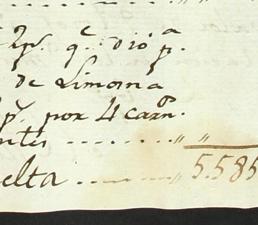 q.e dio p.a
de Limosna
p.r por 4 carn.os
ntes ........ " "
elta ........ 5.585